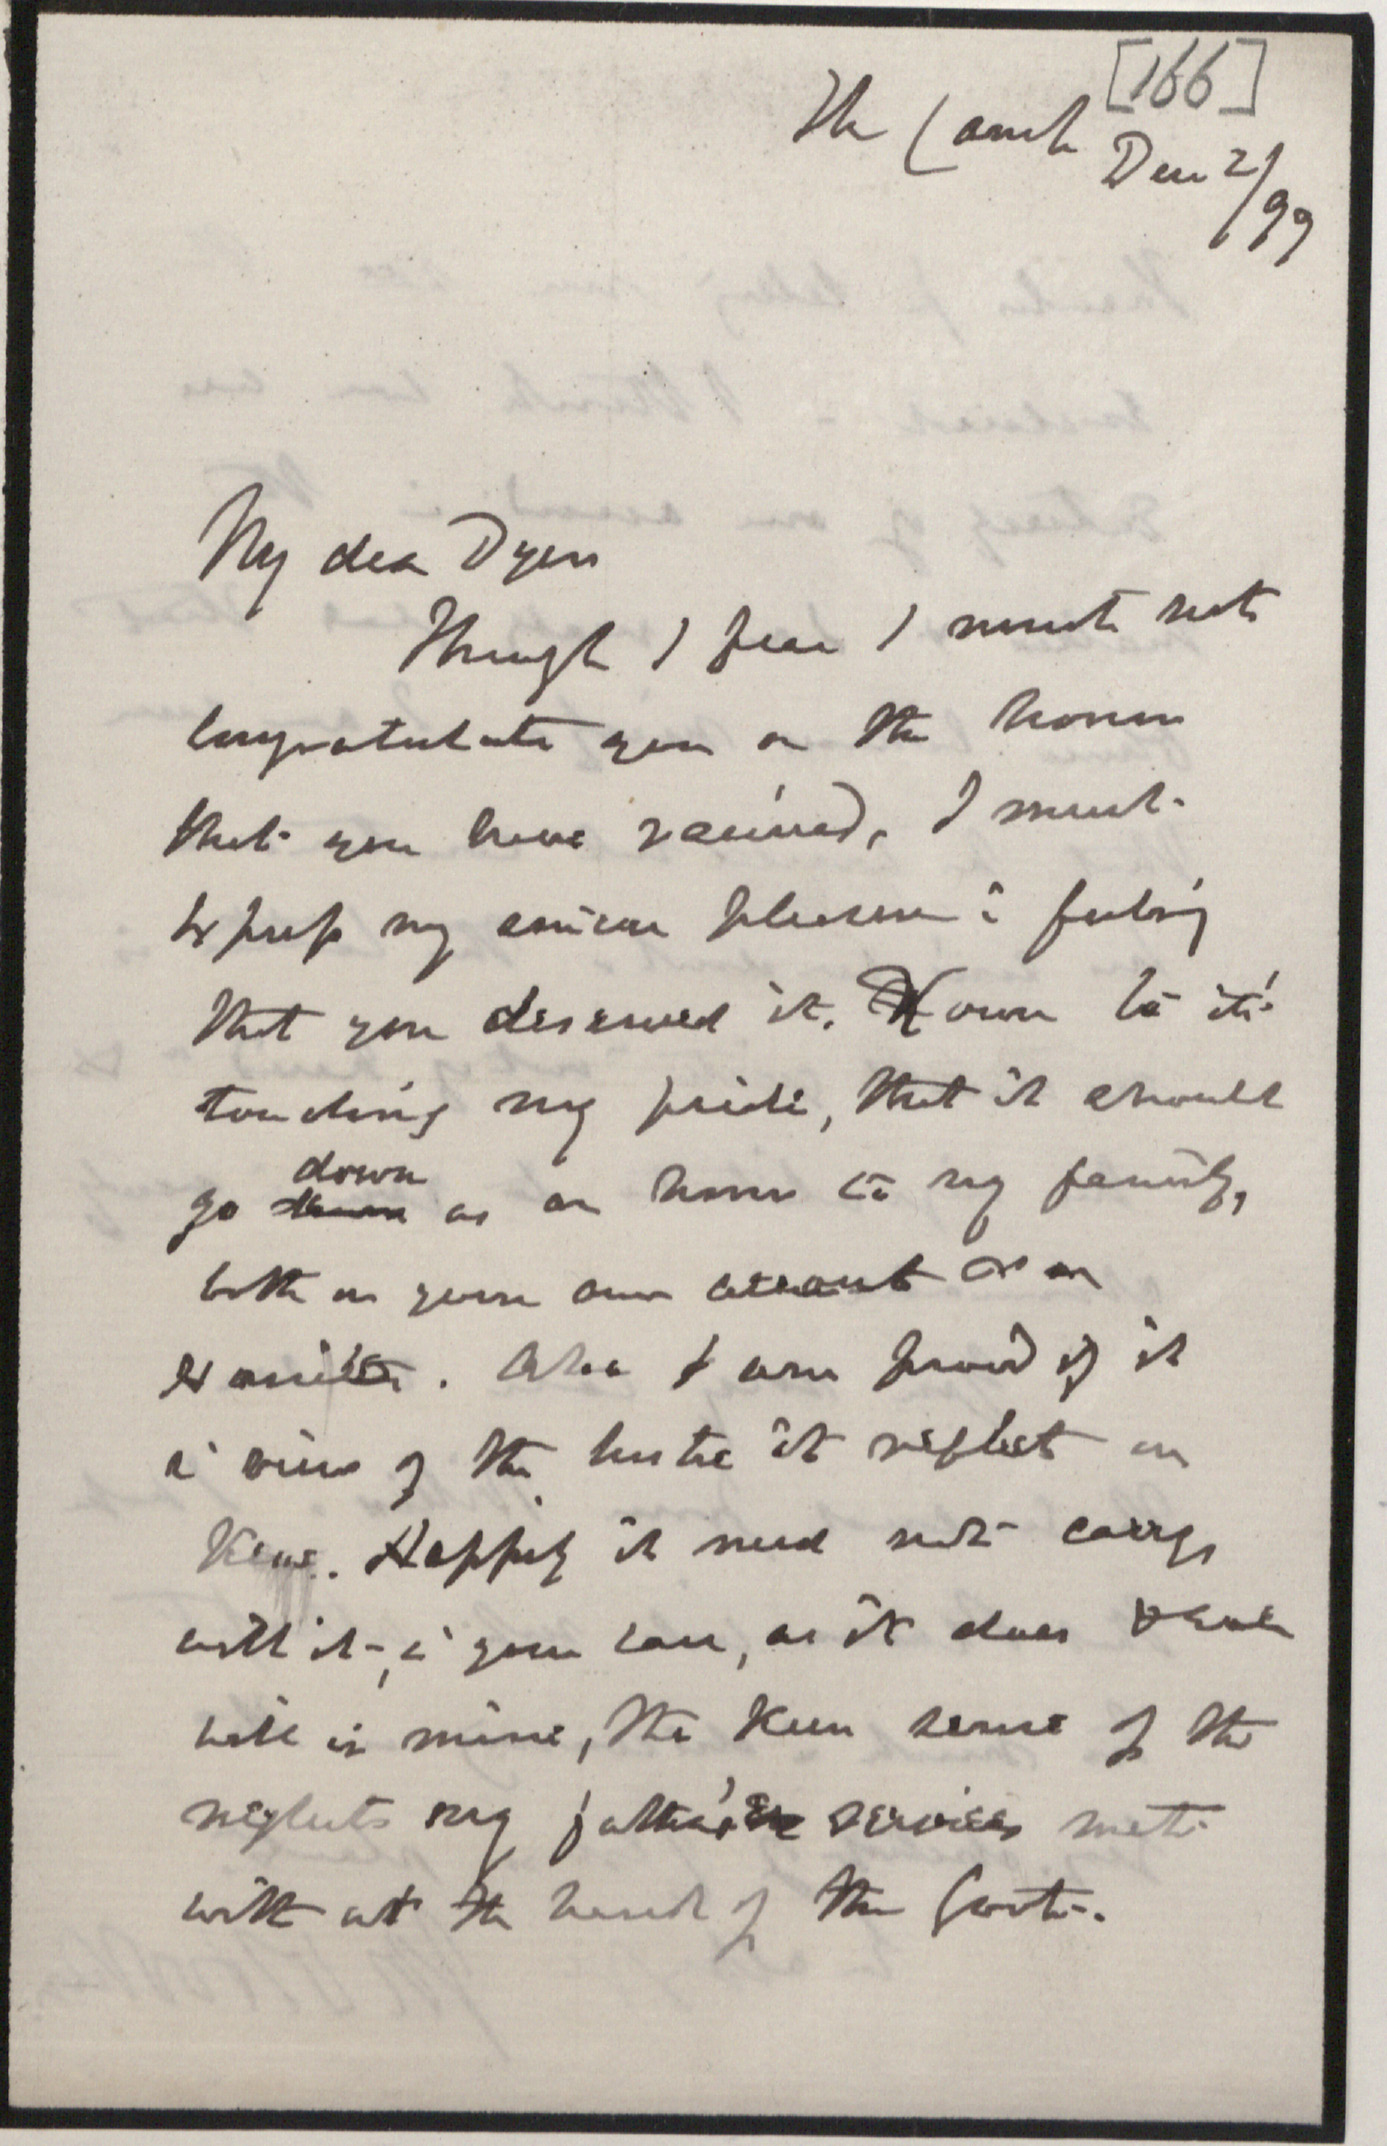 [166]
The Camp
Dec 2/99
My dear Dyer
Though I fear I must not
congratulate you on the honor
that you have received, I must
express my sincere pleasure in feeling
that you deserved it. I own to its
touching my pride, that it should
go down as an honor to my family,
both on your own account & on
Harriet's. Also I am proud of it
in view of the lustre it reflect on
Kew. Happily it need not carry
with it, in your case, as it does
with in mine, the keen sense of the
neglects my father's services met
with at the hands of the Govt.